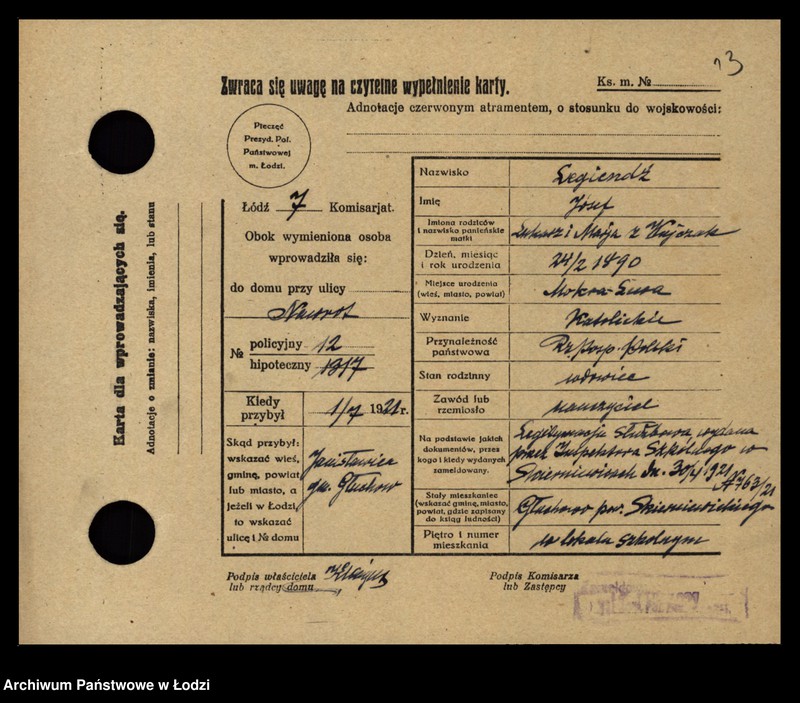 13
Zwraca się uwagę na czytelne wypełnienie karty.
Ks. m. №
Adnotacje czerwonym atramentem, o stosunku do wojskowości:
Pieczęć
Prezyd. Pol.
Państwowej
m. Łodzi.
Karta dla wprowadzających się.
Adnotacje o zmianie: nazwiska, imienia, lub stanu
Łódź 7 Komisarjat.
Obok wymieniona osoba
wprowadziła się:
do domu przy ulicy
Nawrot
№ policyjny 12
hipoteczny 1317
Kiedy przybył 1/7 1921 r.
Skąd przybył:
wskazać wieś,
gminę, powiat
lub miasto, a
jeżeli w Łodzi,
to wskazać
ulicę i № domu
Janisławice
gm. Głuchow
Nazwisko Legiendź
Imię Józef
Imiona rodziców
i nazwisko panieńskie
matki
Łukasz i Marja z Wujczak
Dzień, miesiąc
i rok urodzenia
24/2 1890
Miejsce urodzenia
(wieś, miasto, powiat)
Mokra-Lewa
Wyznanie Katolickie
Przynależność
państwowa
Rz. posp. Polski
Stan rodzinny wdowiec
Zawód lub
rzemiosło
nauczyciel
Na podstawie jakich
dokumentów, przez
kogo i kiedy wydanych
zameldowany.
Legitymacja służbowa wydana
przez Inspektora Szkolnego w
Skierniewicach dn. 30/4 1921 № 763/21
Stały mieszkaniec
(wskazać gminę, miasto,
powiat, gdzie zapisany
do ksiąg ludności)
Głuchowo pow. Skierniewickiego
Piętro i numer
mieszkania
w lokalu szkolnym
Podpis właściciela
lub rządcy domu
Podpis Komisarza
lub Zastępcy
Archiwum Państwowe w Łodzi